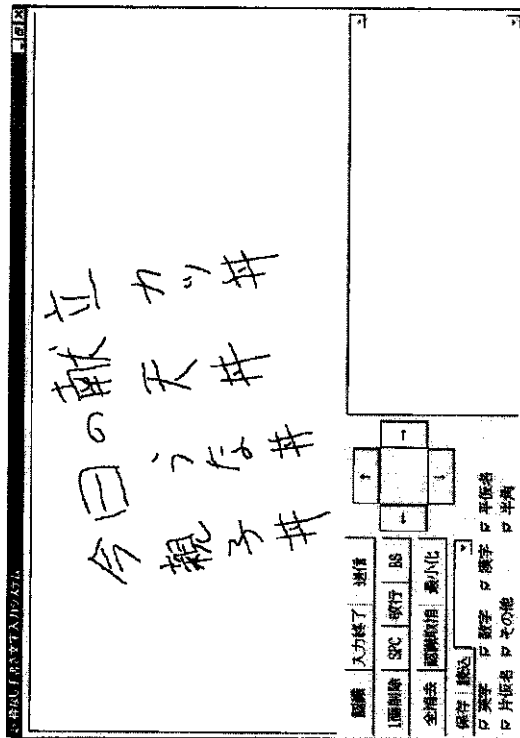 今日の献立
親子丼
うな丼
天丼
カツ丼
認識 入力終了 送信
1画削除 SPC 改行 BS
全消去 認識取消 最小化
保存 読込
英字 数字 漢字 平仮名
片仮名 その他 半角